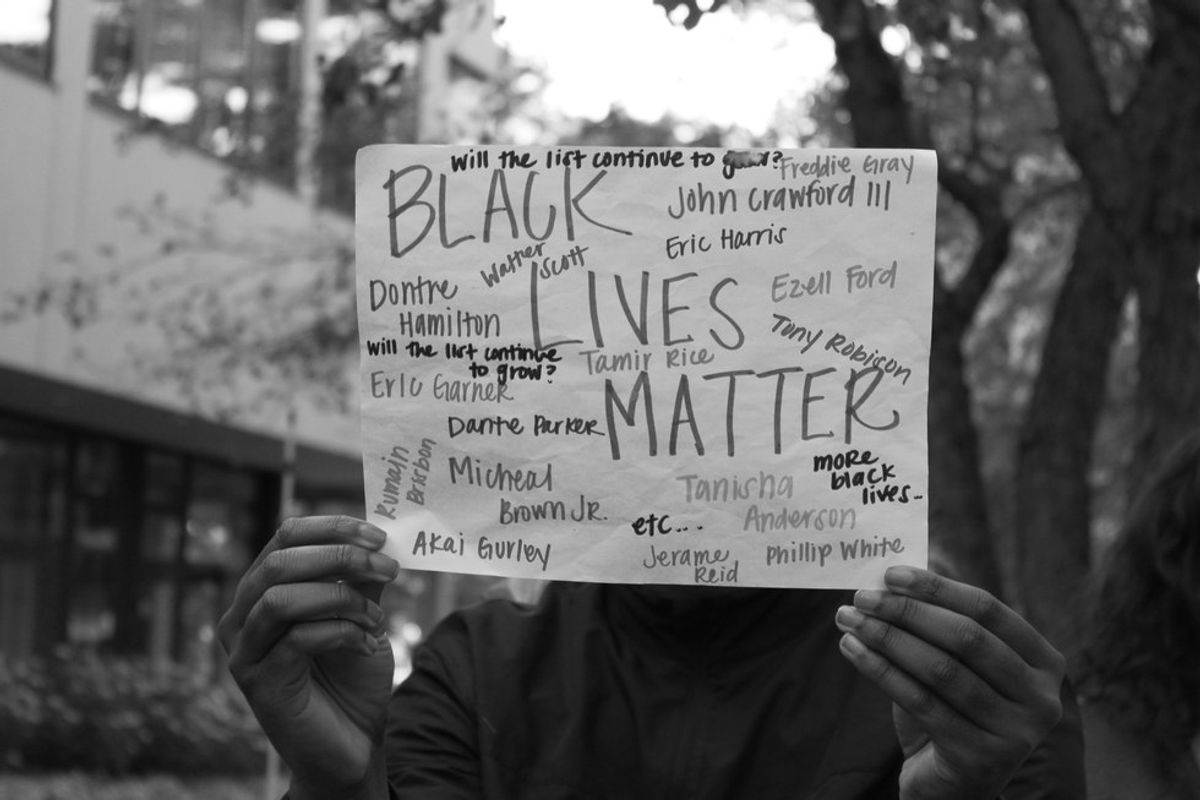 will the list continue to
Freddie Gray
BLACK
John Crawford III
Eric Harris
Walter
Scott
Dontre
Hamilton
LIVES
Ezell Ford
Tony Robison
will the list continue
to grow?
Tamir Rice
Eric Garner
MATTER
Dante Parker
Rumain
Brisbon
Micheal
Brown JR.
more
black
lives..
Tanisha
Anderson
etc....
Akai Gurley
Jerame
Reid
Phillip White